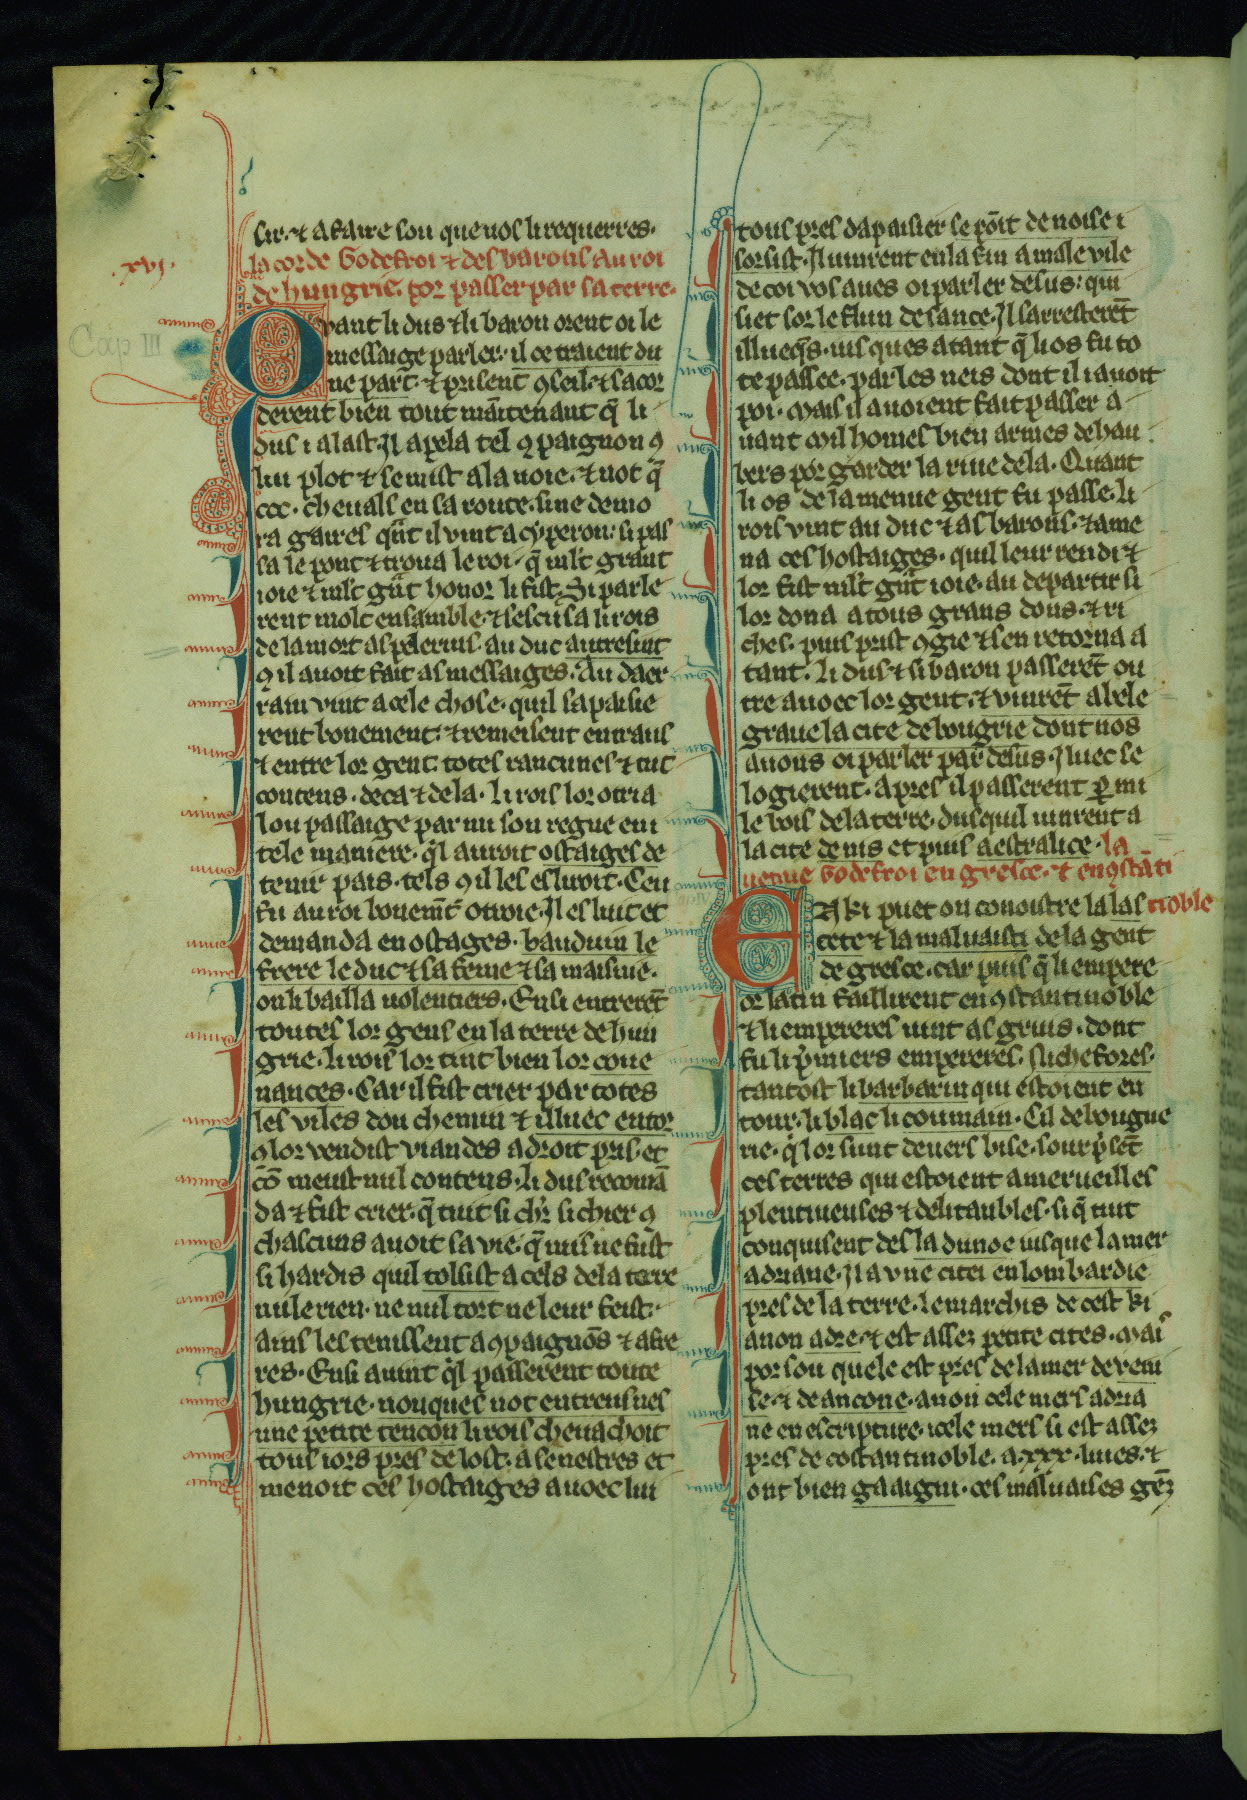 sir. et a faire sou que uos li requerres.
.xvj.
la corde Godefroi et des barons au roi
de hungrie. por passer par sa terre.
Cap III
Quant li dus et li baron orent oi le
messaige parler. il ce traient du
ne part. et prisent 9seil. et sacor
derent bien tout maītenant q̄ li
dus i alast. Il apela tel 9paignon 9
lui plot et se mist a la uoie. et uot q̄
ccc. cheuals en sa route. si ne demo
ra gaires qant il vint a cyperon. si pas
sa le pont et troua le roi. q̄ mlt grant
ioie et mlt gant honor li fist. Si parle
rent molt ensamble. et sescusa li rois
de la mort as pelerins. au duc autresint
9 il auoit fait as messaiges. Au daer
rain vint a cele chose. quil sapaisie
rent bonement. et remeisent entraus
et entre lor gent. totes rancunes et tut
contens. deca et dela. li rois lor otria
lou passaige par mi sou regne en i
tele maniere. ql auroit ostaiges de
tenir pais. tels 9 il les esliroit. Ceu
fu au roi bonemt otroie. Il eslut et
demanda en ostages. bauduin le
frere le duc et sa feme et sa maisnie.
on li bailla uolentiers. Ensi entreret̄
toutes lor gens en la terre de hun
grie. li rois lor tint bien lor coue
nances. Car il fist crier par totes
les viles dou chemin et illuec entor
9 lor vendist viandes a droit pris. et
cō meust nul contens. li dus recomā
da et fist crier. q̄ tuit si chr̄ si chier 9
chascuns auoit sa vie. q̄ nus ne fust
si hardis quil tolsist a cels de la terre
nule rien. ne nul tort ne leur feist.
ains les tenissent a 9paignōs et a fre
res. Ensi auint ql passerent toute
hungrie. nonques not entreus nes
une petite tencon li rois cheuachoit
tous iors pres de lost. a senestres et
menoit ces hostaiges auoec lui
tous pres dapaisier se point de noise i
sorsist. Il uinrent en la fin a male vile
de coi vos aues oi parler desus. qui
siet sor le flun de sauce. Il sarresteret̄
illueqs. iusques atant q̄ li os fu to
te passee. par les neis dont il i auoit
poi. Mais il auoient fait passer a
uant mil homes bien armes de hau
bers por garder la riue dela. Quant
li os de la menue gent fu passe. li
rois vint au duc et as barons. et ame
na ces hostaiges. quil leur rendi et
lor fist mlt gant ioie. au departir si
lor dona a tous grans dons. et ri
ches. puis prist 9gie et sen retorna a
tant. li dus et si baron passeret̄ ou
tre auoec lor gent. et vinret̄ a bele
graue la cite de bougrie dont nos
auons oi parler par desus. Iluec se
logierent. Apres il passerent p mi
le bois de la terre. dusquil uinrent a
la cite de nis et puis a estralice. la
uenue Godefroi en gresce. et en 9stāti
noble
EA ki puet on conoistre la las
cete et la maluaisti de la gent
de gresce. car puis q̄ li empere
or latin faillirent en 9stantinoble
et li empereres uint as grius. dont
fu li pmiers empereres. Nichefores.
tantost li barbarin qui estoient en
tour. li blac li coumain. Cil de bougue
rie. q̄ lor sunt deuers bise. sour pset̄
ces terres qui estoient a merueilles
plentiueuses et delitaubles. si q̄ tuit
conquisent des la dunoe iusque la mer
adriane. Il a vne citei en lombardie
pres de la terre. le marchis de cest ki
a non adre. et est assez petite cites. Mais
por sou quele est pres de la mer de veni
se. et de ancone. a non cele mers adria
ne en escripture. icele mers si est assez
pres de costantinoble. a .xxx. liues. et
ont bien gaaigni. ces maluaises gēz